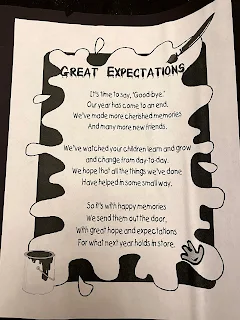 GREAT EXPECTATIONS
It's time to say, "Good-bye."
Our year has come to an end.
We've made more cherished memories
And many more new friends.
We've watched your children learn and grow
and change from day-to-day.
We hope that all the things we've done
Have helped in some small way.
So it's with happy memories
We send them out the door,
With great hope and expectations
For what next year holds in store.